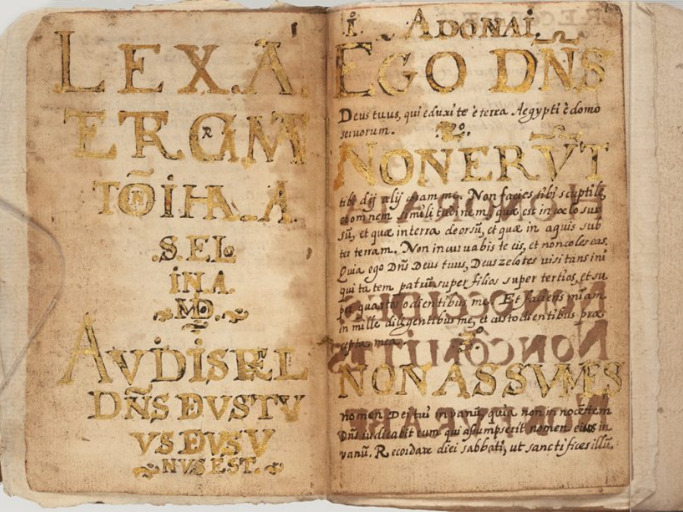 LEX. A.
TŌIHA. A.
S. EL.
IN A.
MO.
AVDISREL
DÑS DEVSTV
VS DEVSV
NVS EST.
I. ADONAI.
EGO DÑS
Deus tuus, qui eduxi te è terra Aegypti è domo
servorum.
2o.
NON ERVT
tibi dij alij coram me. Non facies tibi sculptile,
et omnem similitudinem, quae est in coelo sur
sū, et quae in terra deorsū, et quae in aquis sub
ter terram. Non incurvabis te eis, et non coles eas.
Quia ego Dñs Deus tuus, Deus zelotes visitans ini
qui ta tem patrū super filios super tertios, et su
odientibus me. Et faciens
in mille diligentibus me, et custodientibus prae
mea.
NON ASSVMES
nomen Dei tui in vanū, quia non innocētem
Dñs iudicabit eum qui assumpserit nomen eius in
vanū. Recordare diei sabbati, ut sanctifices illū.